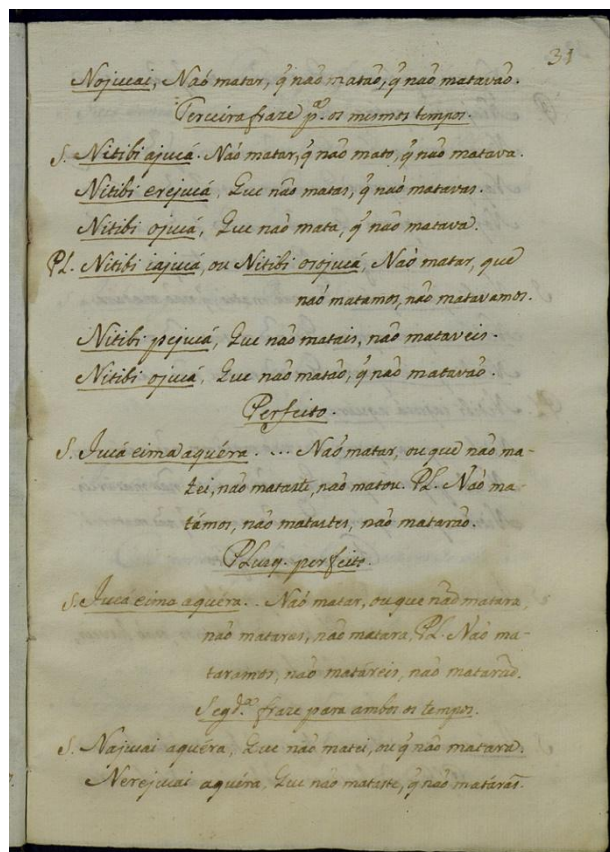 31
Nojucai, Naõ matar, q̃ naõ mataõ, q̃ naõ matavaõ.
Terceira fraze p.ª os mesmos tempos.
S. Nitibi ajucá. Naõ matar, q̃ naõ mato, q̃ naõ matava.
Nitibi erejucá, Que naõ matas, q̃ naõ matavas.
Nitibi ojucá, Que naõ mata, q̃ naõ matava.
PL. Nitibi iajucá, ou Nitibi orojucá, Naõ matar, que
naõ matamos, naõ matavamos.
Nitibi pejucá, Que naõ matais, naõ mataveis.
Nitibi ojucá, Que naõ mataõ, q̃ naõ matavaõ.
Perfeito.
S. Jucá eima aquéra .... Naõ matar, ou que naõ ma-
tei, naõ mataste, naõ matou. PL. Naõ ma-
támos, naõ matastes, naõ mataraõ.
PLusq. perfeito.
S. Jucá eima aquéra .. Naõ matar, ou que naõ matara,
naõ mataras, naõ matara, PL. Naõ ma-
taramos, naõ matáreis, naõ mataraõ.
Segd.ª fraze para ambos os tempos.
S. Najucai aquéra, Que naõ matei, ou q̃ naõ matara.
Nerejucai aquéra, Que naõ mataste, q̃ naõ matáras.